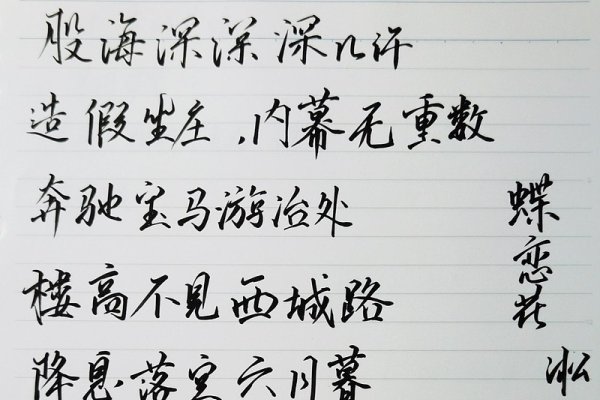 股海深深深几许
造假坐庄,内幕无重数
奔驰宝马游冶处
楼高不见西城路
降息落空六月暮
蝶恋花
凇